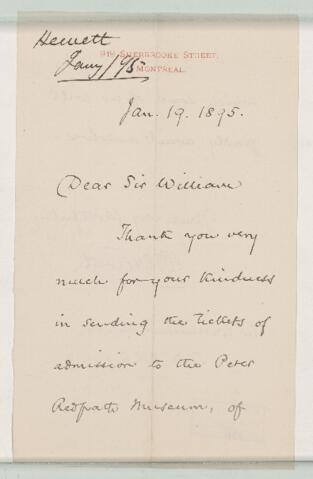 Hewett
Jany/95
919 SHERBROOKE STREET.
MONTREAL.
Jan. 19. 1895.
Dear Sir William
Thank you very
much for your kindness
in sending the tickets of
admission to the Peter
Redpath Museum, of